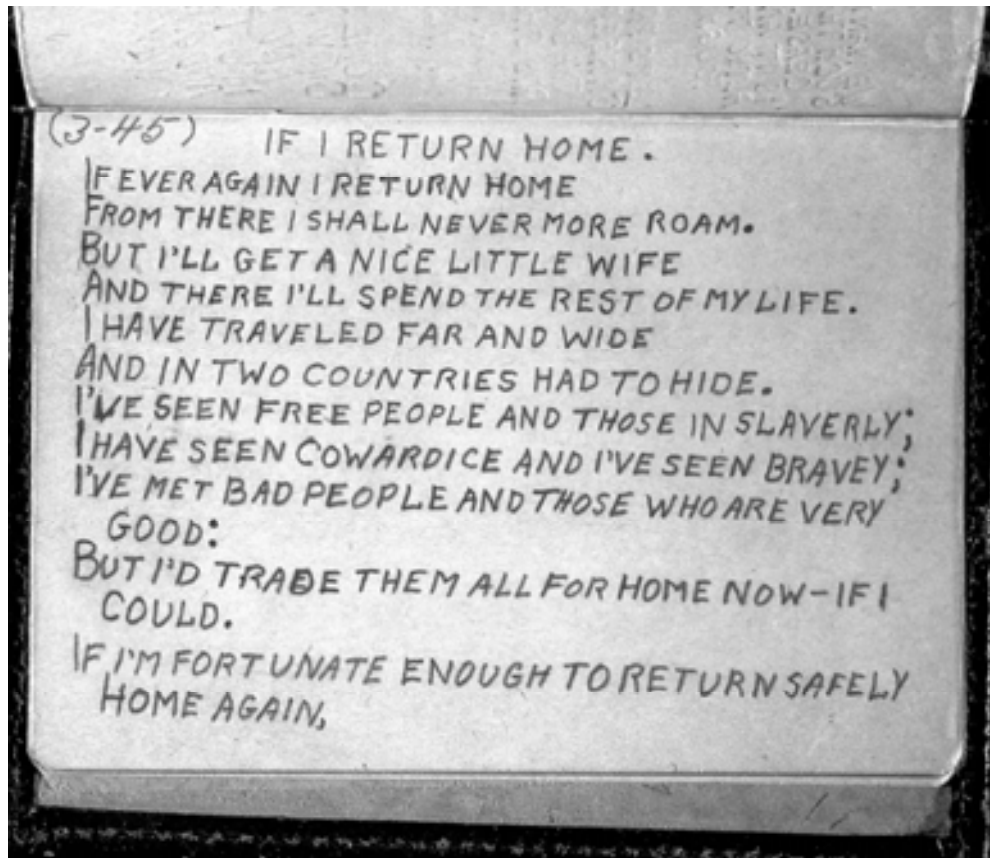 (3-45)
IF I RETURN HOME.
IF EVER AGAIN I RETURN HOME
FROM THERE I SHALL NEVER MORE ROAM.
BUT I'LL GET A NICE LITTLE WIFE
AND THERE I'LL SPEND THE REST OF MY LIFE.
I HAVE TRAVELED FAR AND WIDE
AND IN TWO COUNTRIES HAD TO HIDE.
I'VE SEEN FREE PEOPLE AND THOSE IN SLAVERLY;
I HAVE SEEN COWARDICE AND I'VE SEEN BRAVEY;
I'VE MET BAD PEOPLE AND THOSE WHO ARE VERY
GOOD:
BUT I'D TRADE THEM ALL FOR HOME NOW-IF I
COULD.
IF I'M FORTUNATE ENOUGH TO RETURN SAFELY
HOME AGAIN,